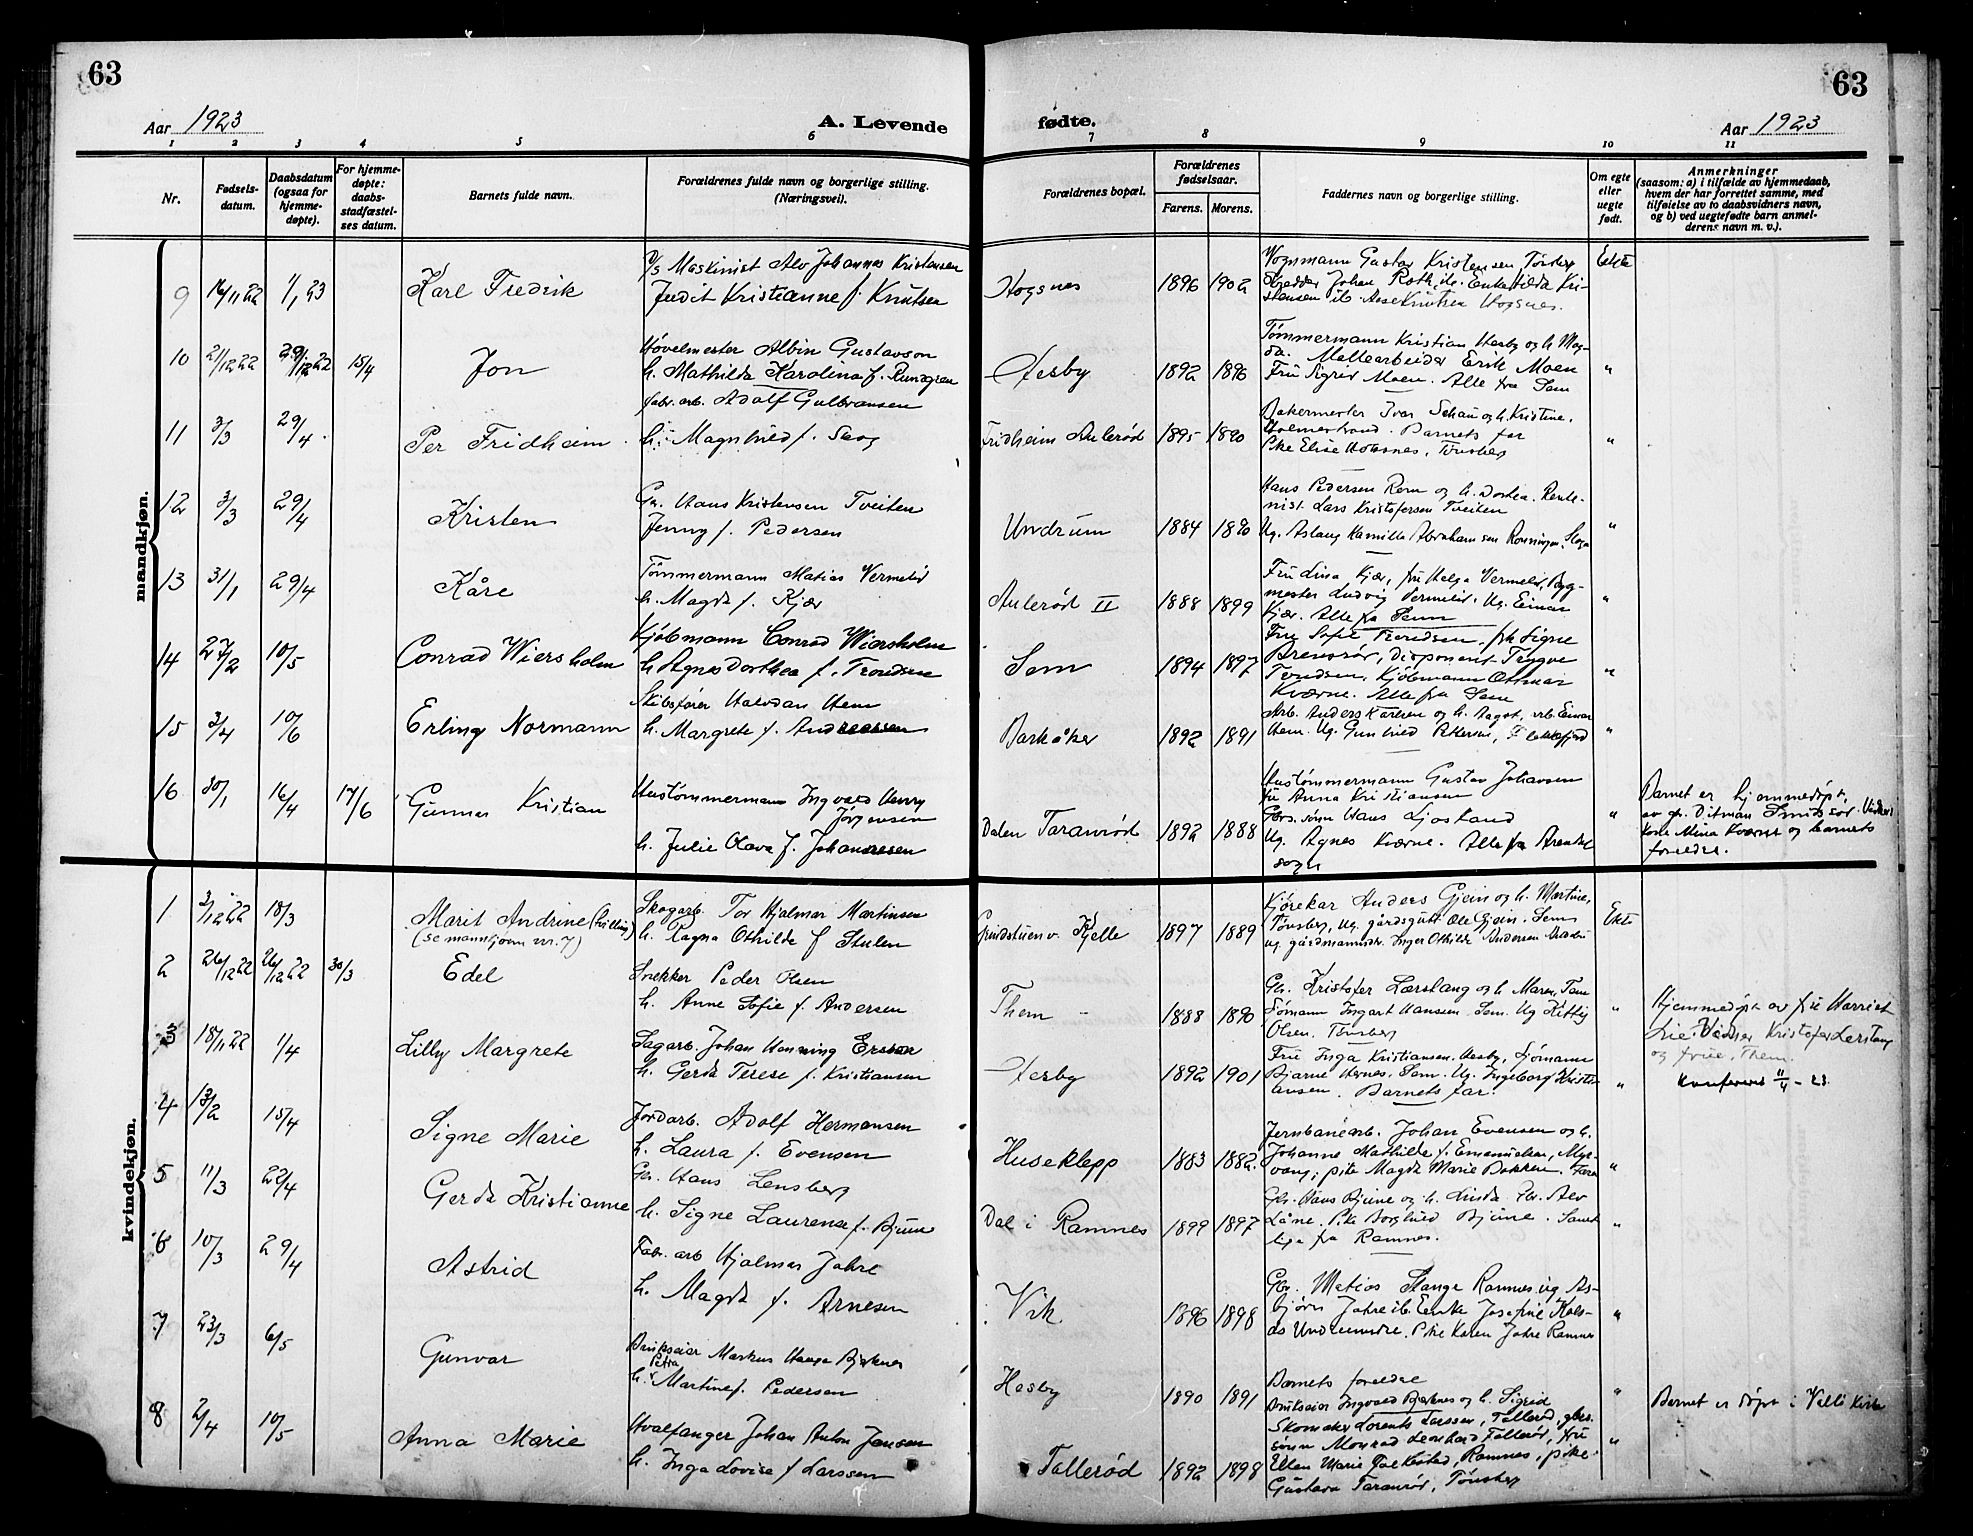 63
63
Aar 1923
A. Levende
fødte.
Aar 1923
1 2 3 4 5 6 7 8 9 10 11
Nr.
Fødsels-
datum.
Daabsdatum
(ogsaa for
hjemme-
døpte).
For hjemme-
døpte:
daabs-
stadfæstel-
ses datum.
Barnets fulde navn.
Forældrenes fulde navn og borgerlige stilling.
(Næringsvei).
Forældrenes bopæl.
Forældrenes
fødselsaar.
Farens. Morens.
Faddernes navn og borgerlige stilling.
Om egte
eller
uegte
født.
Anmerkninger
(saasom: a) i tilfælde av hjemmedaab,
hvem der har forrettet samme, med
tilføielse av to daabsvidners navn,
og b) ved uegtefødte barn anmel-
derens navn m. v.).
mandkjøn.
9 16/11 22 1/1 23 Karl Fredrik
Maskinist Alv Johannes Kristensen
Judit Kristianne f. Knutsen
Hogsnes 1896 1902
Vognmann Gustav Kristensen, Tønsberg
Skredder Johan Roth, Enke Tilda Kri-
stensen Aase Knutsen Hogsnes.
Ekte
10 21/12 22 29/12 22 15/4 Jon
Høvelmester Albin Gustavson
h. Mathilda Karolina f. Rundgren
Hesby 1892 1896
Tømmermann Kristian Hesby og h. Mag-
da. Møllearbeider Erik Moen
Fru Sigrid Moen. Alle fra Sem
"
11 3/3 29/4 Per Fridheim
fabr. arb. Adolf Gulbransen
h. Magnhild f. Skog
Fridheim Aulerød 1895 1890
Bakermester Ivar Schau og h. Kristine,
Holmestrand. Barnets far
Pike Elise Hotsnes, Tønsberg
"
12 3/3 29/4 Kristen
Gr. Hans Kristensen Tveiten
Jenny f. Pedersen
Undrum 1884 1890
Hans Pedersen Rom og h. Dortea. Rente-
nist Lars Kristofersen Tveiten
Ug. Aslaug Kamilla Abrahamsen Rønningen, Slagn
"
13 31/1 29/4 Kåre
Tømmermann Matias Vermelid
h. Magda f. Kjær
Aulerød II 1888 1899
Fru Lina Kjær, fru Helga Vermelid, Byg-
mester Ludvig Vermelid. Ug. Einar
Kjær. Alle fra Sem
"
14 27/2 10/5 Conrad Wiersholm
Kjøbmann Conrad Wiersholm
h. Agnes Dorthea f. Trondsen
Sem 1894 1897
Fru Sofie Trondsen, frk Signe
Brensrør, Disponent Trygve
Trondsen, Kjøbmann Ottmar
Kværne. Alle fra Sem
"
15 3/4 10/6 Erling Normann
Skibsfører Halvdan Hem
h. Margrete f. Andreassen
Barkåker 1892 1891
Arb. Anders Karlsen og h. Aagot, arb. Einar
Hem. Ug. Gunhild Pettersen, Flekkefjord
"
16 30/1 16/4 17/6 Gunnar Kristian
Hustømmermann Ingvald Henry
Jørgensen
h. Julie Olava f. Johannesen
Dalen Taranrød 1892 1888
Hustømmermann Gustav Johansen
fru Anna Kristiansen
Gbrs. sønn Hans Ljosland
Ug. Agnes Kværne. Alle fra Arendal
sogn
"
Barnet er hjemmedøpt,
av gr. Ditman
kone Mina Kværne og barnets
foreldre.
kvindekjøn.
1 3/12 22 18/3 Marit Andrine (tvilling)
(se mannkjønn nr. 7)
Skogarb. Tor Hjalmar Martinsen
h. Ragna Othilde f. Stulen
Grindstuen v. Kjelle 1897 1889
Kjørekar Anders Gjein og h. Martine,
Tønsberg, Ug. gårdsgutt Ole Gjein. Sem
ug. gårdmannsdr. Inger Othilde Andersen
Ekte
2 26/12 22 26/12 22 30/3 Edel
Snekker Peder Olsen
h. Anne Sofie f. Andersen
Them 1888 1890
Gbr. Kristofer Lærstang og h. Maren, Tem
Sømann Ingart Hansen. Sem. Ug Kittig
Olsen. Tønsberg
"
Hjemmedøpt av fru Harriet
Lie. Vidner Kristofer Lerstang
og frue, Them.
3 18/11 22 1/4 Lilly Margrete
Sagarb. Johan Henning Erson
h. Gerda Terese f. Kristiansen
Hesby 1892 1901
Frue Inga Kristiansen. Hesby, Sjømann
Bjarne Hernes, Sem. Ug. Ingeborg Kristi-
ansen. Barnets far.
"
Konfereret 11/4 - 28
4 13/2 15/4 Signe Marie
Jordarb. Adolf Hermansen
h. Laura f. Evensen
Huseklepp 1883 1882
Jernbanearb. Johan Evensen og h.
Johanne Mathilde f. Emanuelsen, Myr-
vang; pike Magda Marie Bakken.
"
5 11/3 22/4 Gerda Kristianne
Gbr. Hans Lensberg
h. Signe Laurense f. Bjune
Dal i Ramnes 1899 1897
Gbr. Hans Bjune og h. Linda. Gbr. Alv
Låne. Pike Borghild Bjune. Samt-
lige fra Ramnes.
"
6 10/3 29/4 Astrid
Fabr. arb Hjalmar Jahre
h. Magda f. Arnesen
Vik 1896 1898
Gbr. Matias Stange Ramnes, ug As-
bjørn Jahre ib. Enke Josefine Hals-
ås Undrumsdal. Pike Karen Jahre Ramnes
"
7 23/3 6/5 Gunvor
Bruksseier Markus Hauge Bjerknes
Petra
h. Martine f. Pedersen
Hesby 1890 1891
Barnets foreldre
Brukseier Ingvald Bjerknes og h. Sigrid
"
Barnet er døpt i Velle kirke
8 2/4 10/5 Anna Marie
Hvalfanger Johan Anton Jansen
h. Inga Lovise f. Larssen
Tallerød 1892 1898
Skomaker Lorents Larssen, Tallerød, gbrs.
sønn Monrad Leonhard Tallerød, fru
Ellen Marie Falkestad, Ramnes, pike
Gustava Taranrød, Tønsberg
"